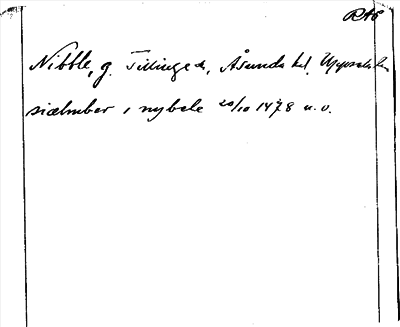 RAP
Nibble, g. Tillinge sn, Åsunds hd, Uppsala län
siælmber i nybele 20/10 1478 u. o.